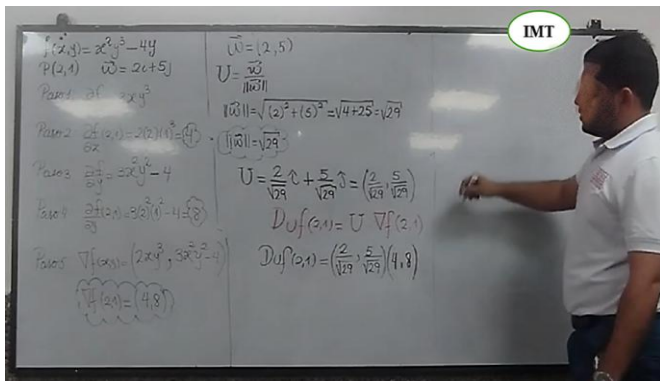 IMT
f(x,y)=x²y³-4y
P(2,1) w⃗=2i+5j
Paso1 ∂f 2xy³
Paso2 ∂f/∂x (2,1)=2(2)(1)³=4
Paso3 ∂f/∂y = 3x²y²-4
Paso4 ∂f/∂y (2,1)=3(2)²(1)²-4=8
Paso5 ∇f(x,y)=(2xy³, 3x²y²-4)
∇f(2,1)=(4,8)
w⃗=(2,5)
U=w⃗/||w⃗||
||w⃗||=√(2)²+(5)²=√4+25=√29
||w⃗||=√29
U=2/√29 î+5/√29 ĵ=(2/√29, 5/√29)
Duf(2,1)=U ∇f(2,1)
Duf(2,1)=(2/√29, 5/√29)(4,8)